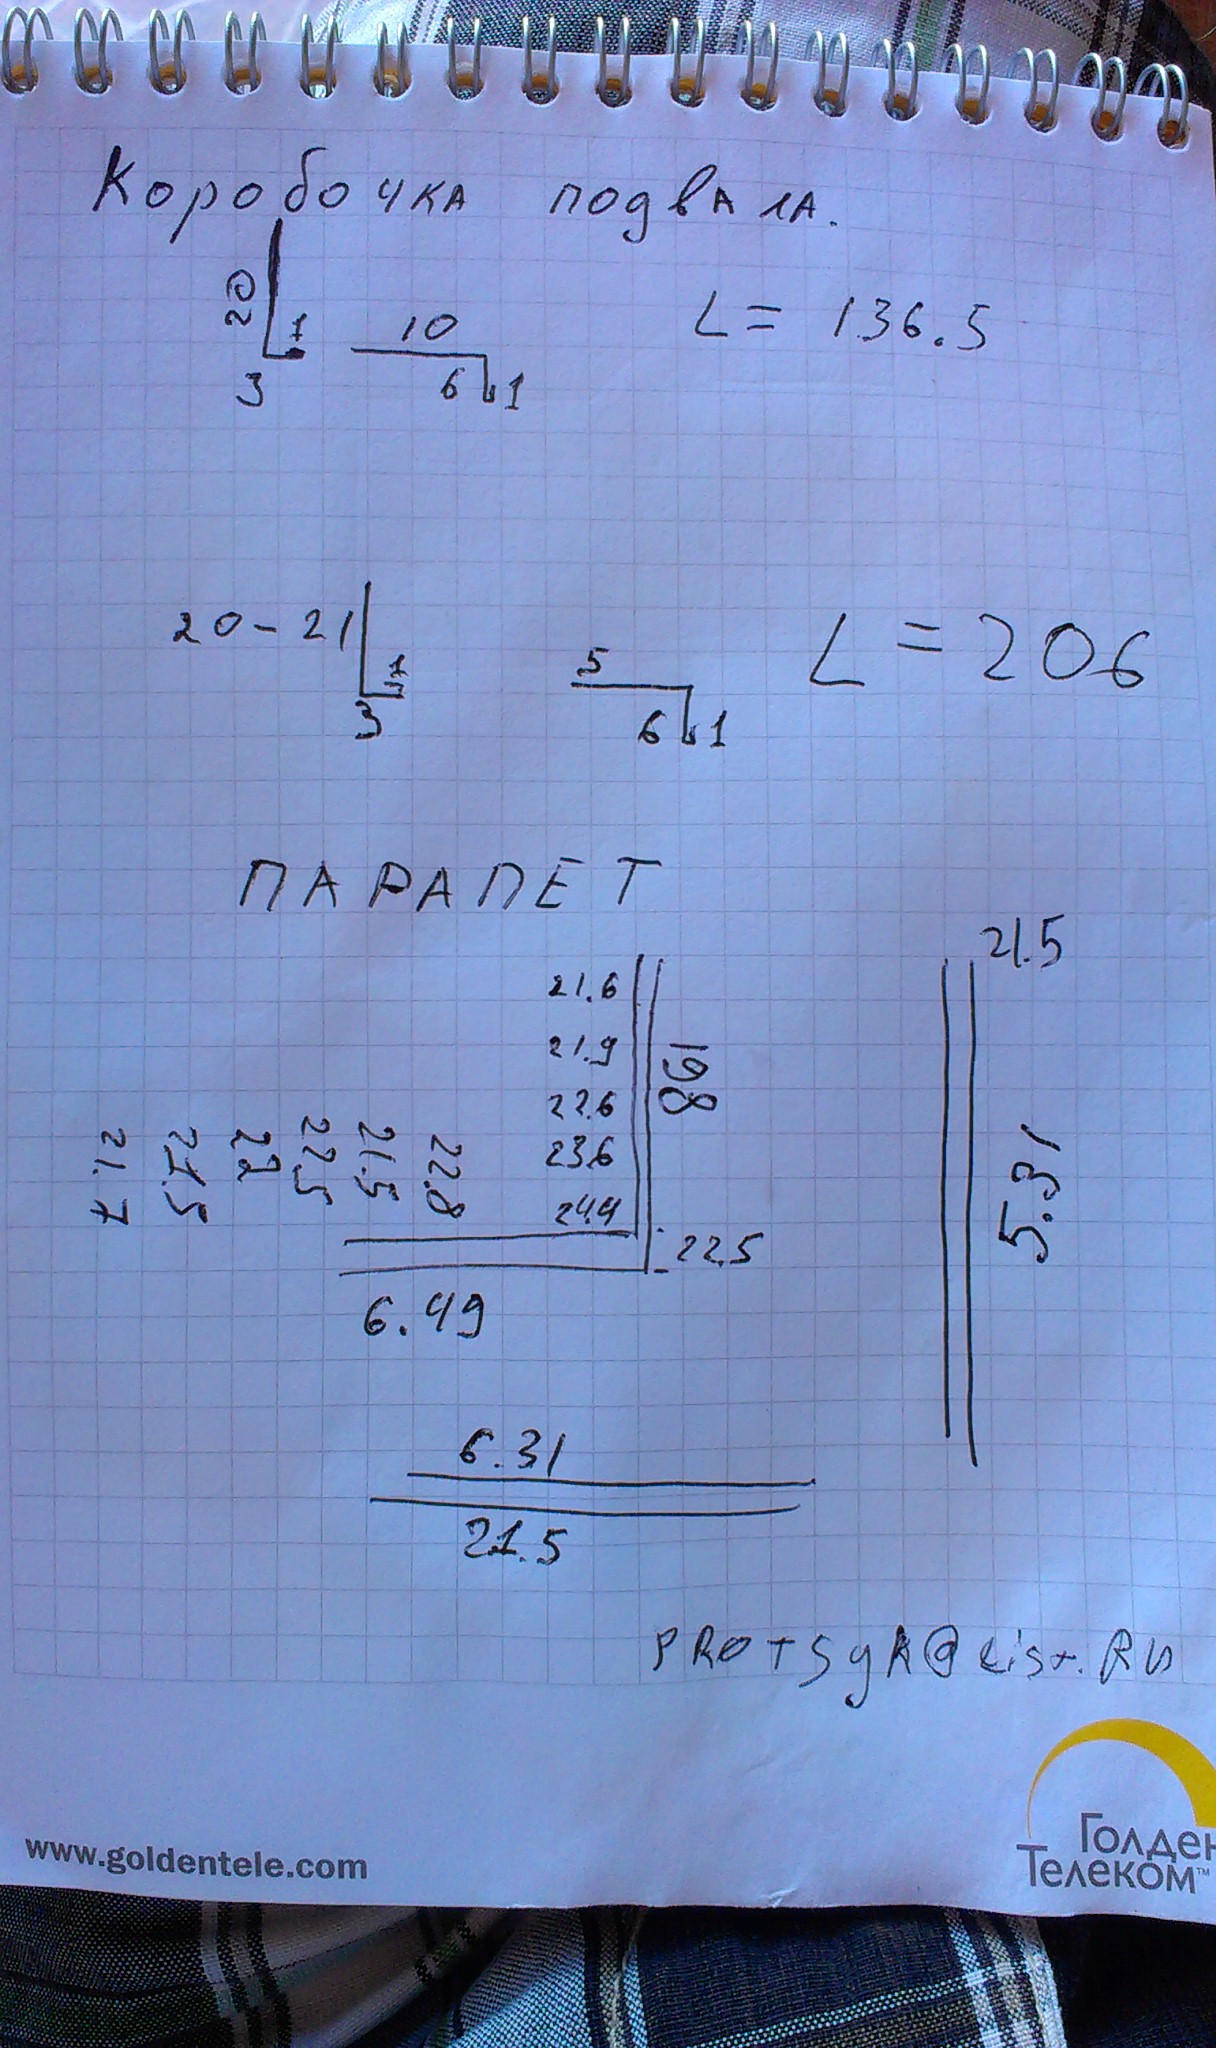 Коробочка подвала.
20 1 3
10 6 1
L = 136.5
20-21 1 3
5 6 1
L = 206
ПАРАПЕТ
21.6
21.9
22.6
23.6
24.4
22.5
22.8
21.5
22.5
22
21.7
6.49
21.5
5.31
6.31
21.5
www.goldentele.com
Голден
Телеком™